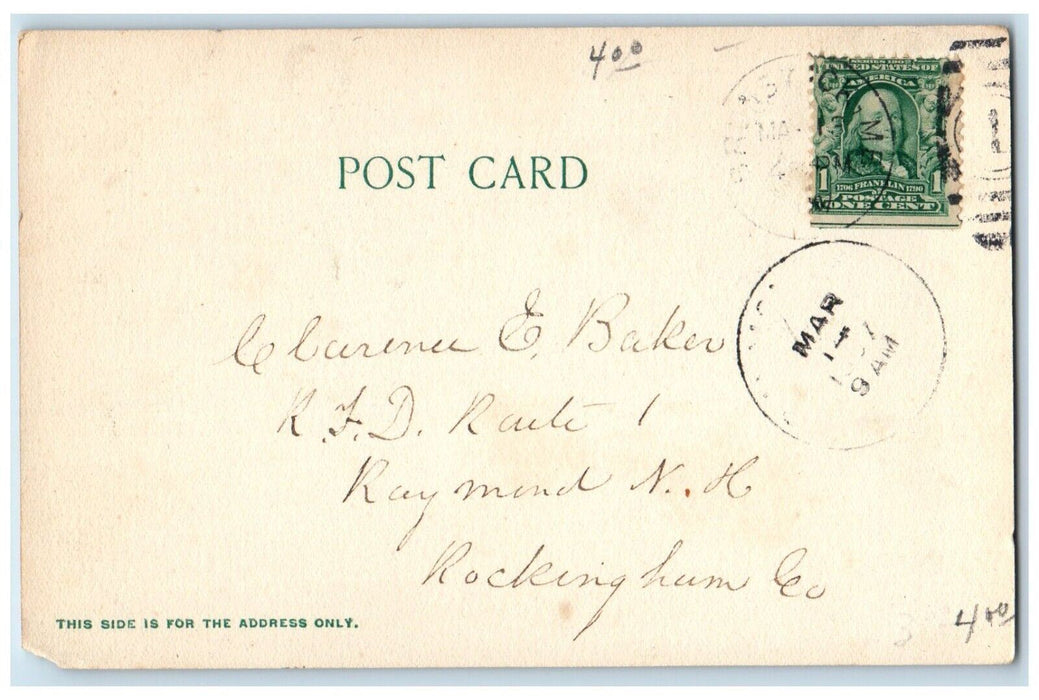 4⁰⁰
SERIES 1902
UNITED STATES OF
AMERICA
1 1706 FRANKLIN 1790 1
POSTAGE
ONE CENT
1
POST CARD
MAR
9 AM
Clarence E. Baker
R.F.D. Route 1
Raymond N. H
Rockingham Co
THIS SIDE IS FOR THE ADDRESS ONLY.
4⁰⁰